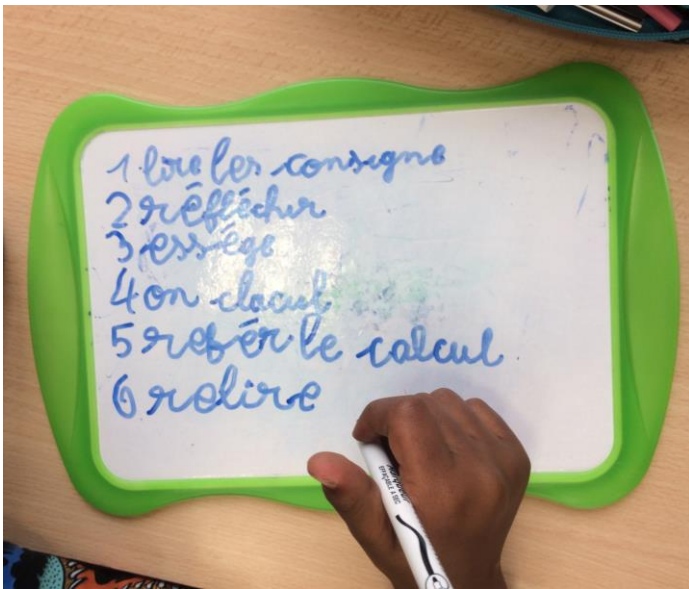 1 lire les consigne
2 réfléchir
3 essége
4 on clacul
5 refér le calcul
6 relire